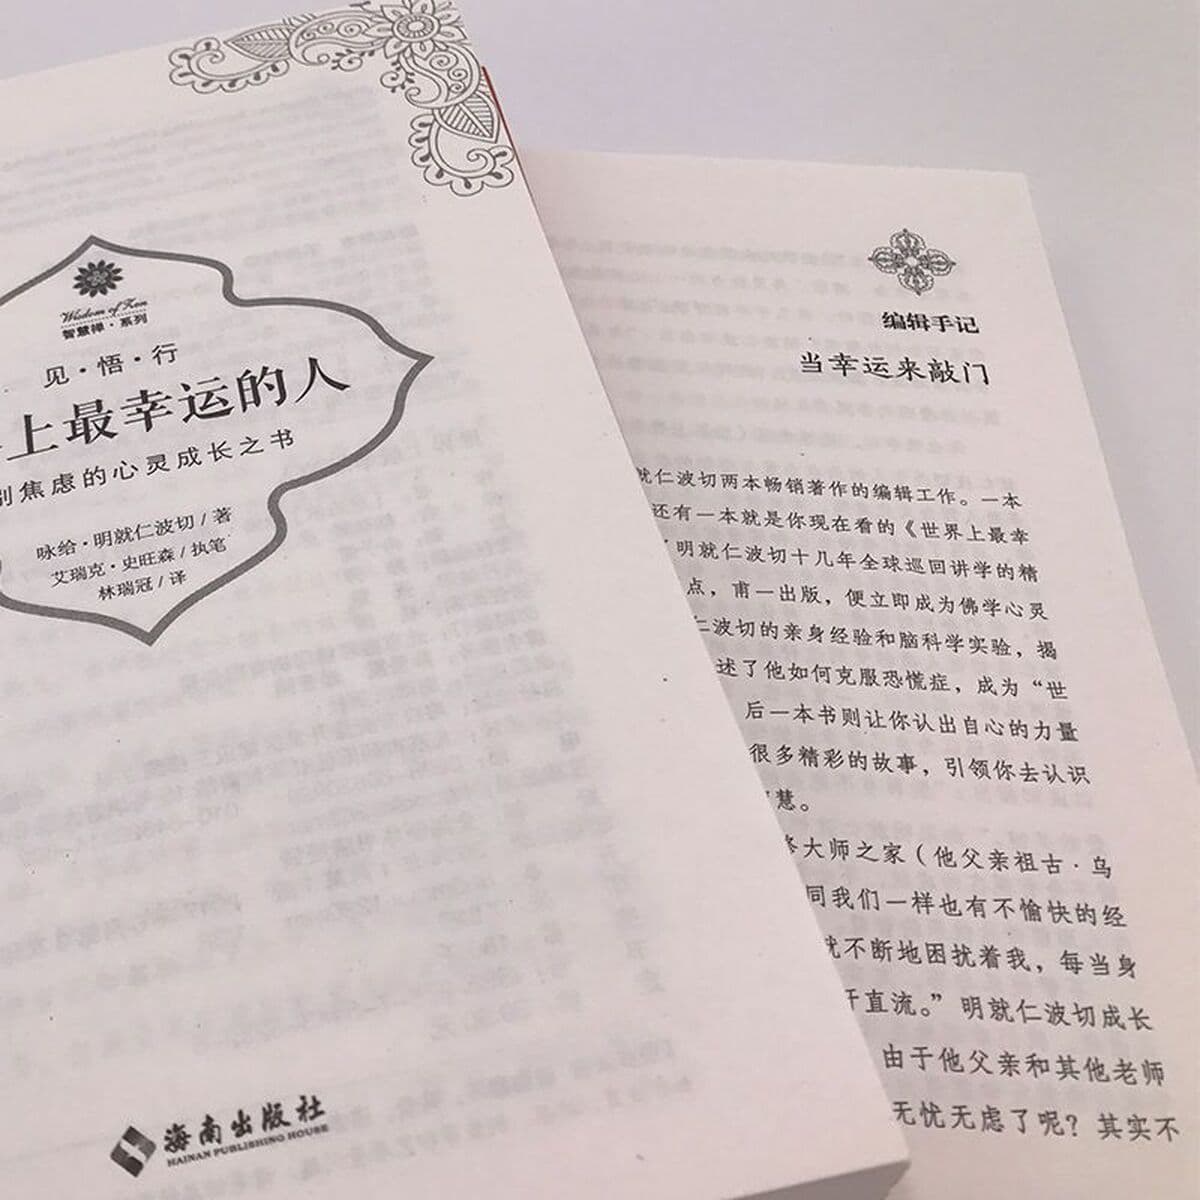 Wisdom of Zen
智慧禅·系列
见·悟·行
上最幸运的人
别焦虑的心灵成长之书
咏给·明就仁波切/著
艾瑞克·史旺森/执笔
林瑞冠/译
海南出版社
HAINAN PUBLISHING HOUSE
编辑手记
当幸运来敲门
就仁波切两本畅销著作的编辑工作。一本
还有一本就是你现在看的《世界上最幸
明就仁波切十几年全球巡回讲学的精
点，甫一出版，便立即成为佛学心灵
仁波切的亲身经验和脑科学实验，揭
述了他如何克服恐慌症，成为“世
后一本书则让你认出自心的力量
很多精彩的故事，引领你去认识
慧。
大师之家（他父亲祖古·乌
同我们一样也有不愉快的经
就不断地困扰着我，每当身
直流。”明就仁波切成长
由于他父亲和其他老师
无忧无虑了呢？其实不